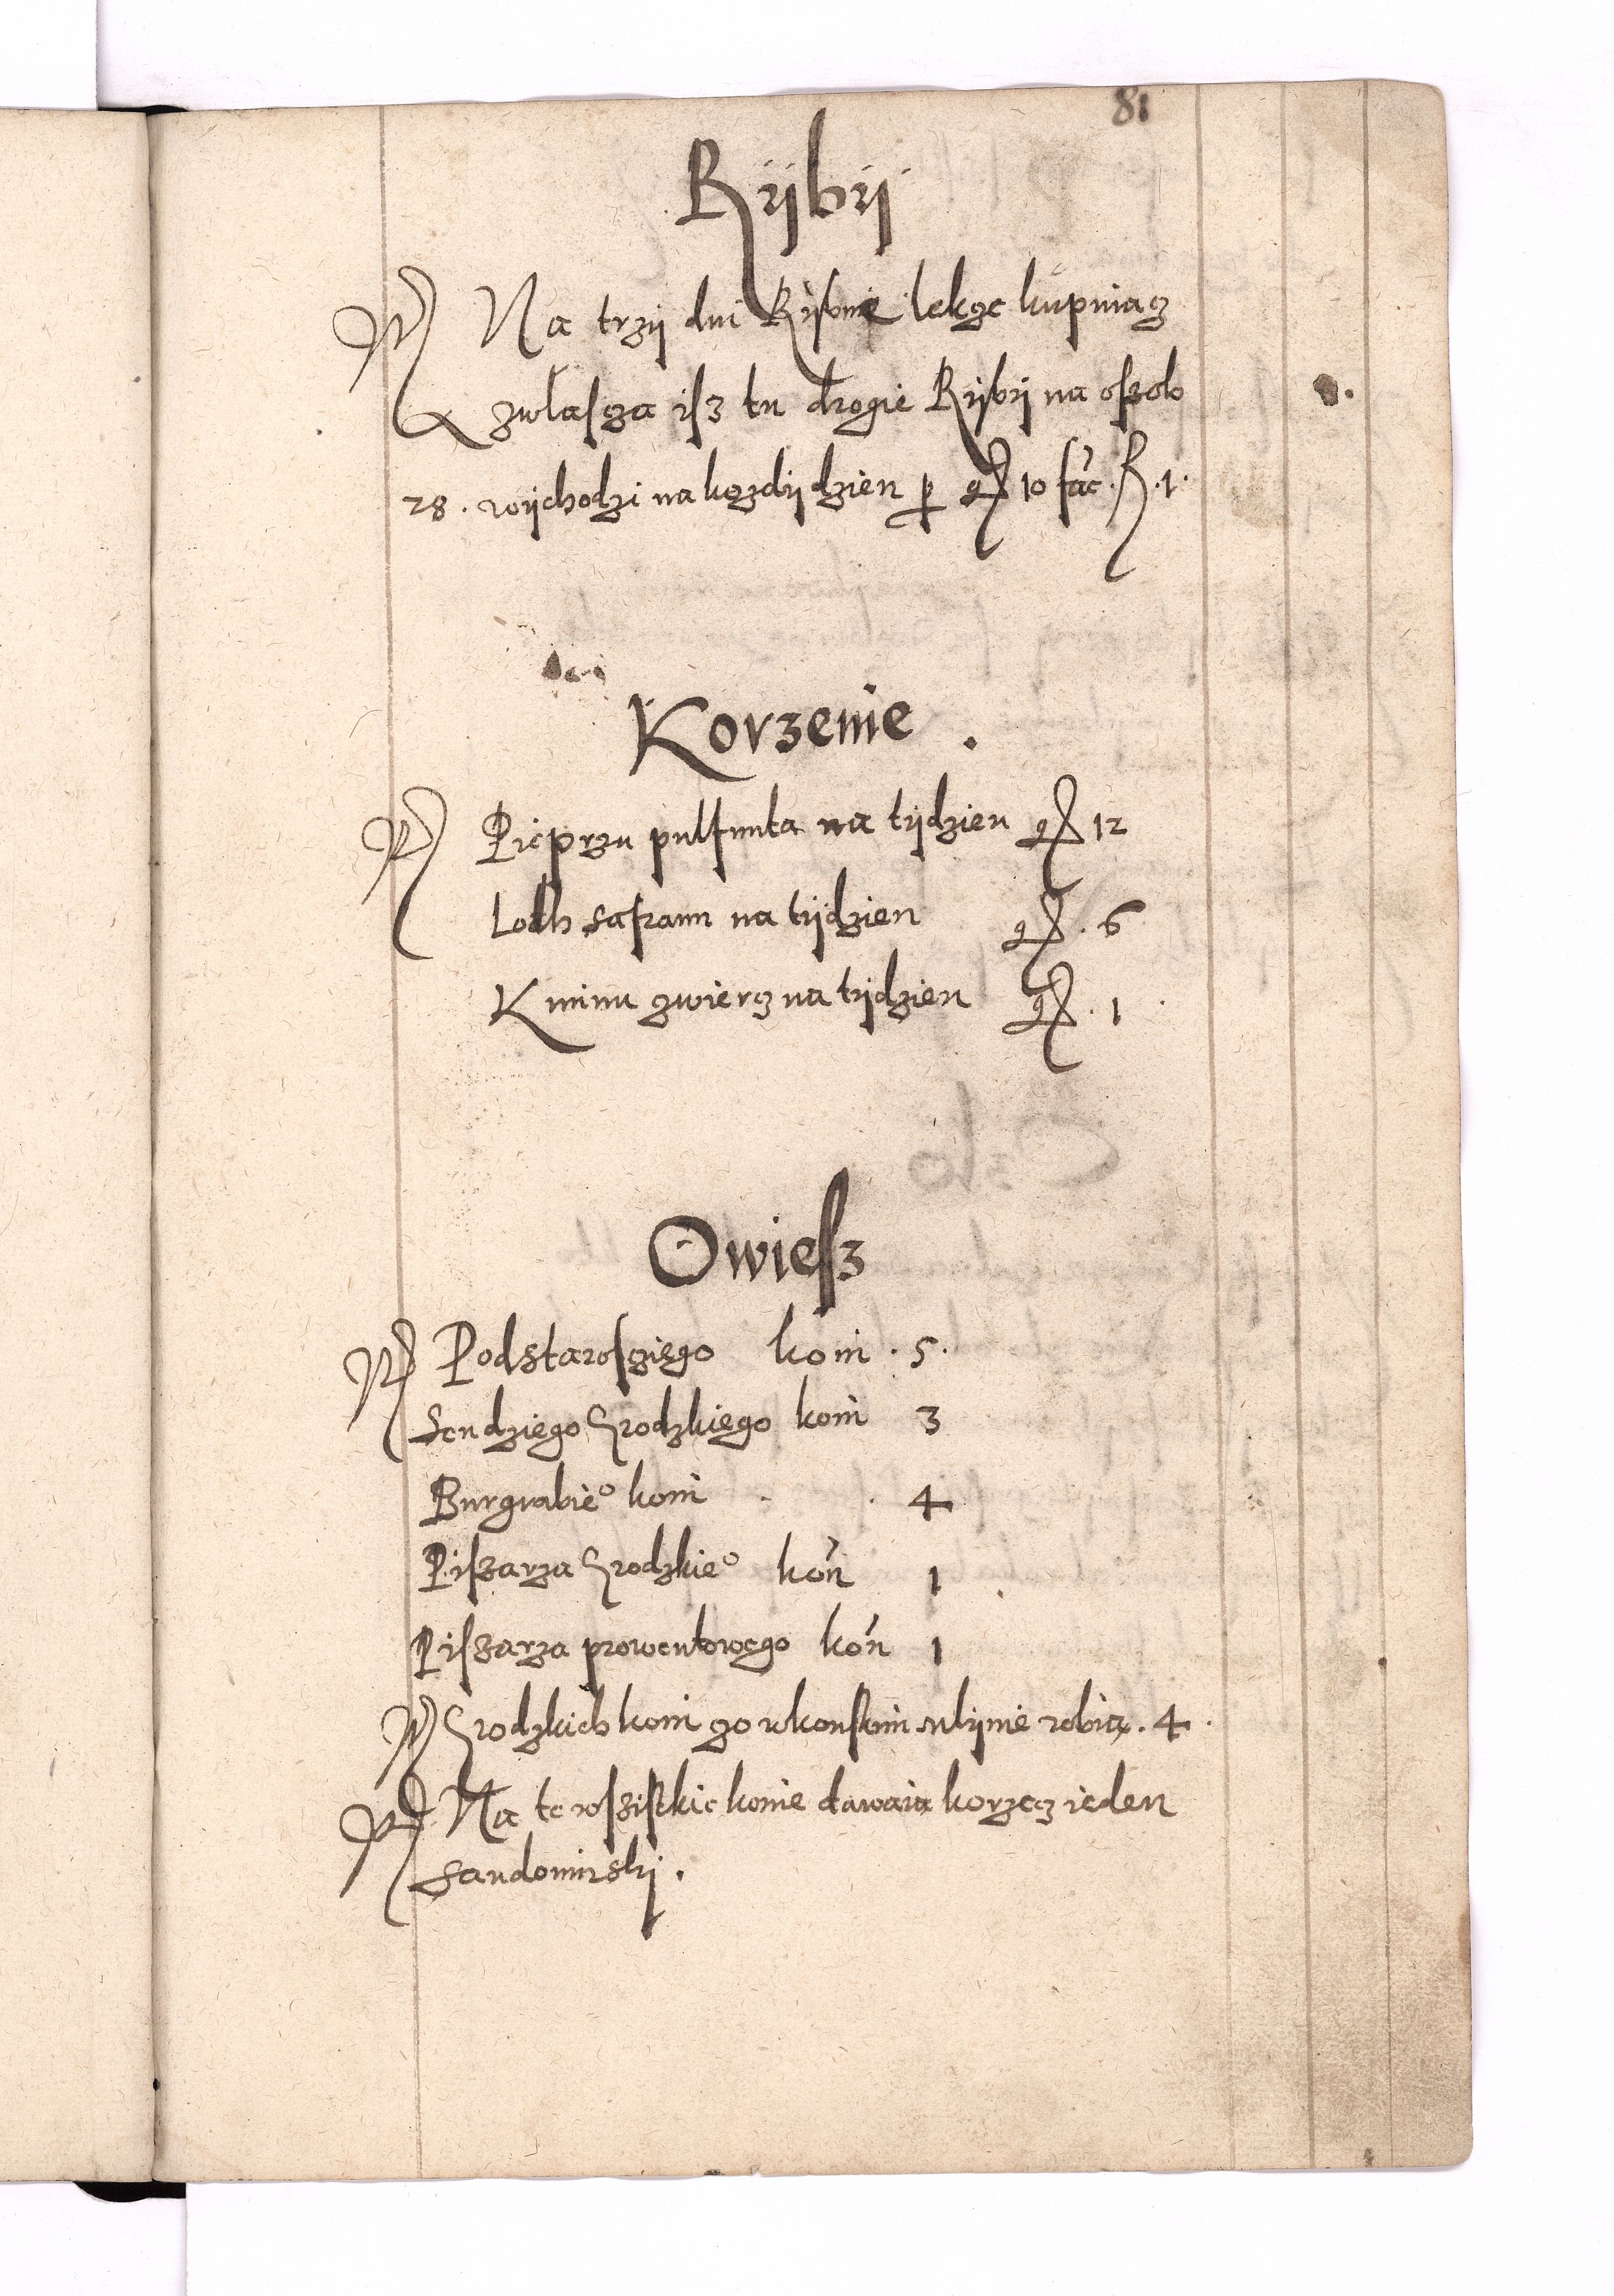 81
Rÿbÿ
Na trzÿ dni Rÿbnie lekcze kupuiącz
zwlascza isz tu drogie Rÿbÿ na oszob
28. wÿchodzi na kozdÿ dzien p gr 10 fac. R. 1.
Korzenie.
Pieprzu pulfunta na tÿdzien gr 12
Loth safranu na tÿdzien gr. 6
Kminu zwiercz na tÿdzien gr. 1
Owiesz
Podstarosczięgo koni. 5.
Sendziego Grodzkiego koni 3
Burgrabie° koni 4
Piszarza Grodzkie° kon 1
Piszarza prowentowego kon 1
Grodzkich koni zo wkonskim mlÿnie robią. 4.
Na te wszistkie konie dawaią korzecz ieden
Sandomirskj.